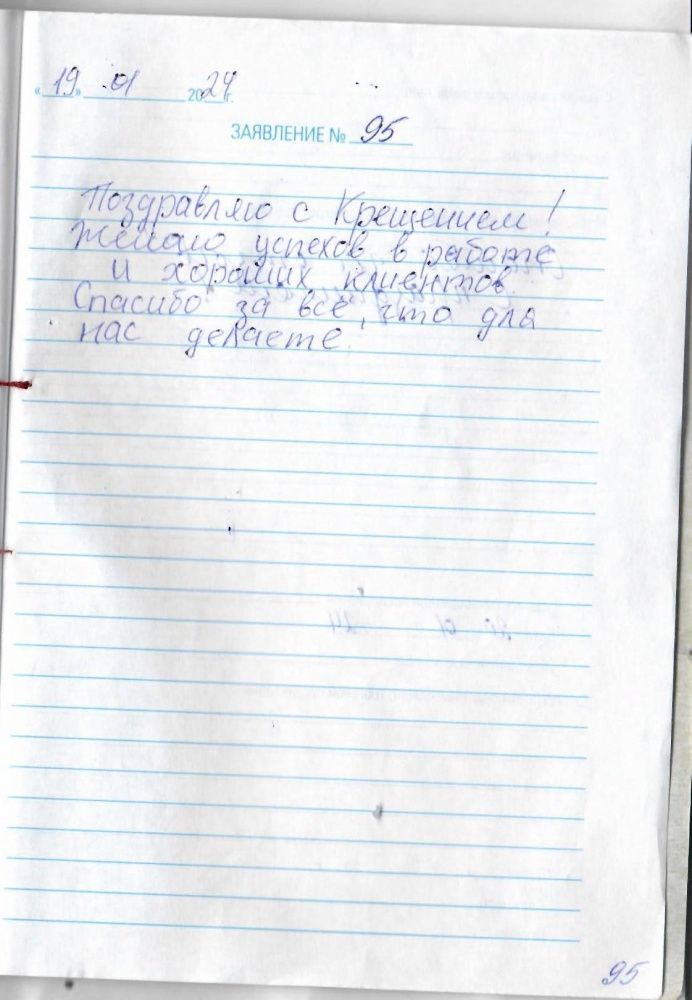 «19» 01 2024г.
ЗАЯВЛЕНИЕ № 95
Поздравляю с Крещением!
Желаю успехов в работе
и хороших клиентов.
Спасибо за всё, что для
нас делаете.
95